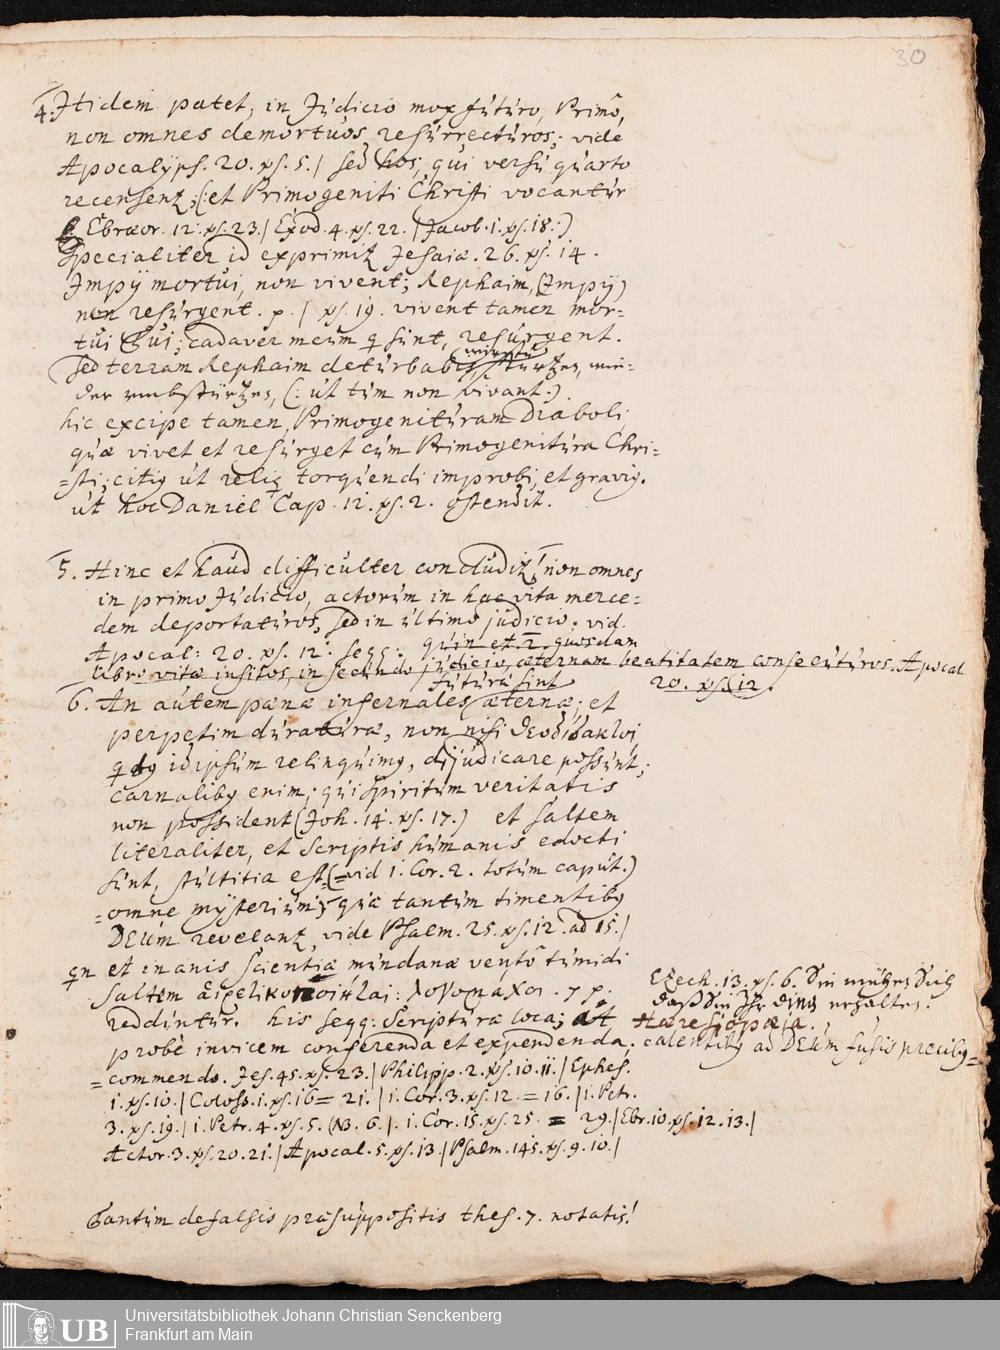 30
4. Itidem patet, in Judicio mox futuro, Primô,
non omnes demortuos resurrecturos; vide
Apocalyps. 20. ps. 5. / sed hos, qui versu quarto
recensent; (: et Primogeniti Christi vocantur
Ebræor. 12. ps. 23. / Exod. 4. ps. 22. / Jacob. 1. ps. 18. :)
Specialiter id exprimit Jesaiæ. 26. ps. 14.
Impij mortui, non vivent; Rephaim, (Impij)
non resurgent. p. / ps. 19. vivent tamen mor=
tui Tui; cadaver meum q sunt, resurgent.
Sed terram Rephaim deturbabis, stürtzen, wie=
der umbstürtzen, (: ut tum non vivant :)
hic excipe tamen, Primogenituram Diaboli
quæ vivet et resurget cum Primogenitura Chri=
=sti; citiq ut reliq torquendi improbi, et graviq.
ut hoc Daniel Cap. 12. ps. 2. ostendit.
5. Hinc et haud difficulter concludit! non omnes
in primo Judicio, actorum in hac vita merce=
dem deportaturos, sed in ultimo judicio. vid.
Apocal: 20. ps. 12. seqq. quin et quosdam
libro vitæ insitos, in secundo judicio, æternam beatitatem consecuturos. Apocal
20. ps. 12.
futuræ sint
6. An autem pœnæ infernales æternæ; et
perpetim duraturæ, non nisi θεοδίδακτοι
q id ipsum relinquimq, dijudicare possunt;
carnalibq enim; qui Spiritum veritatis
non possident (Joh. 14. ps. 17.) et saltem
literaliter, et scriptis humanis edocti
sunt, stultitia est (=vid 1. Cor. 2. totum caput.)
=omne mysterium; quæ tantum timentibq
DEUM revelant, vide Psalm. 25. ps. 12. ad 15. /
qn et inanis scientiæ mundanæ ventô tumidi
saltem : λογομάχοι. p.
Ezech. 13. ps. 6. Sie mühen sich
daß Sie Ihr ding erhalten.
redduntur. his seqq: Scripturæ loca; At
Hæresiopœia.
probè invicem conferenda et expendenda. calentibq ad DEUM fusis precibq=
=commendo. Jes. 45. ps. 23. / Philipp. 2. ps. 10. 11. / Ephes.
1. ps. 10. / Coloss. 1. ps. 16 = 21. / 1. Cor. 3. ps. 12. = 16. / 1. Petr.
3. ps. 19. / 1. Petr. 4. ps. 5. (NB. 6. /. 1. Cor. 15. ps. 25. = 29. / Ebr. 10. ps. 12. 13. /
Actor. 3. ps. 20. 21. / Apocal. 5. ps. 13 / Psalm. 145. ps. 9. 10. /
Tantum de falsis præsuppositis thes. 7. notatis!
UB
Universitätsbibliothek Johann Christian Senckenberg
Frankfurt am Main